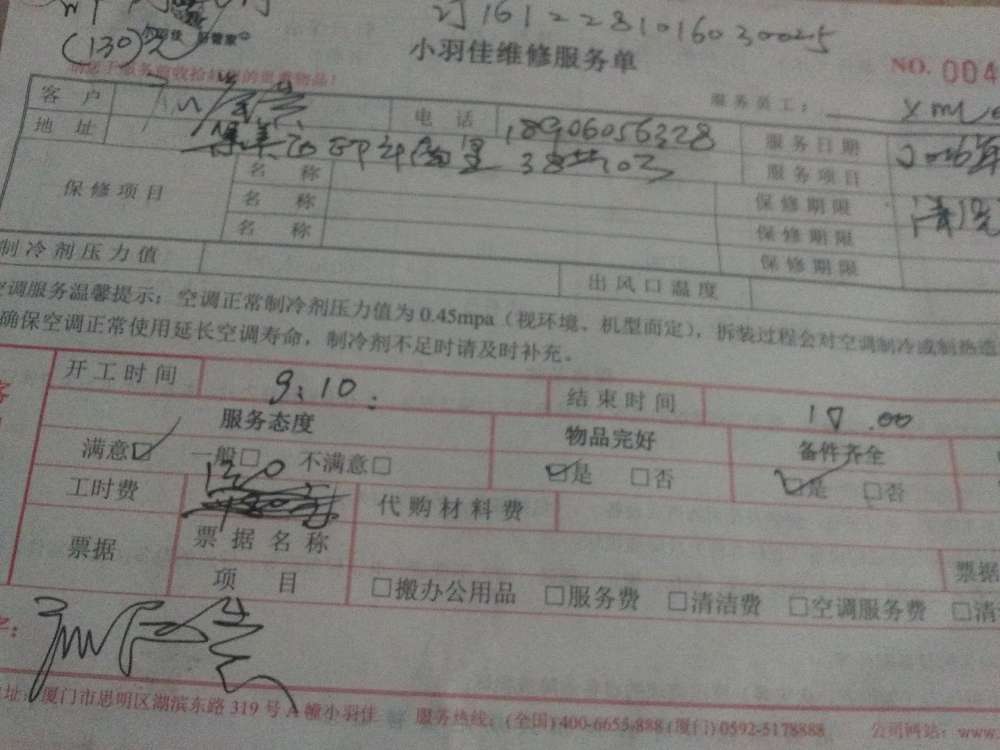 订161228101603 0025
(130)元 小羽佳 好管家
小羽佳维修服务单
NO. 004
服务前收拾好您的贵重物品！
服务员工：
客户 电话 18906056328 服务日期
地址 集美 38 服务项目 清洗
保修项目 名称 保修期限
名称 保修期限
名称 保修期限
制冷剂压力值 出风口温度
空调服务温馨提示：空调正常制冷剂压力值为0.45mpa（视环境、机型而定），拆装过程会对空调制冷或制热造
确保空调正常使用延长空调寿命，制冷剂不足时请及时补充。
开工时间 9:10 结束时间 17.00
服务态度 物品完好 备件齐全
满意☑ 一般□ 不满意□ ☑是 □否 ☑是 □否
工时费 130 代购材料费
票据 票据名称 票据
项目 □搬办公用品 □服务费 □清洁费 □空调服务费 □清
字：
地址：厦门市思明区湖滨东路319号A幢小羽佳 服务热线：(全国)400-6655-888 (厦门)0592-5178888 公司网站：www.